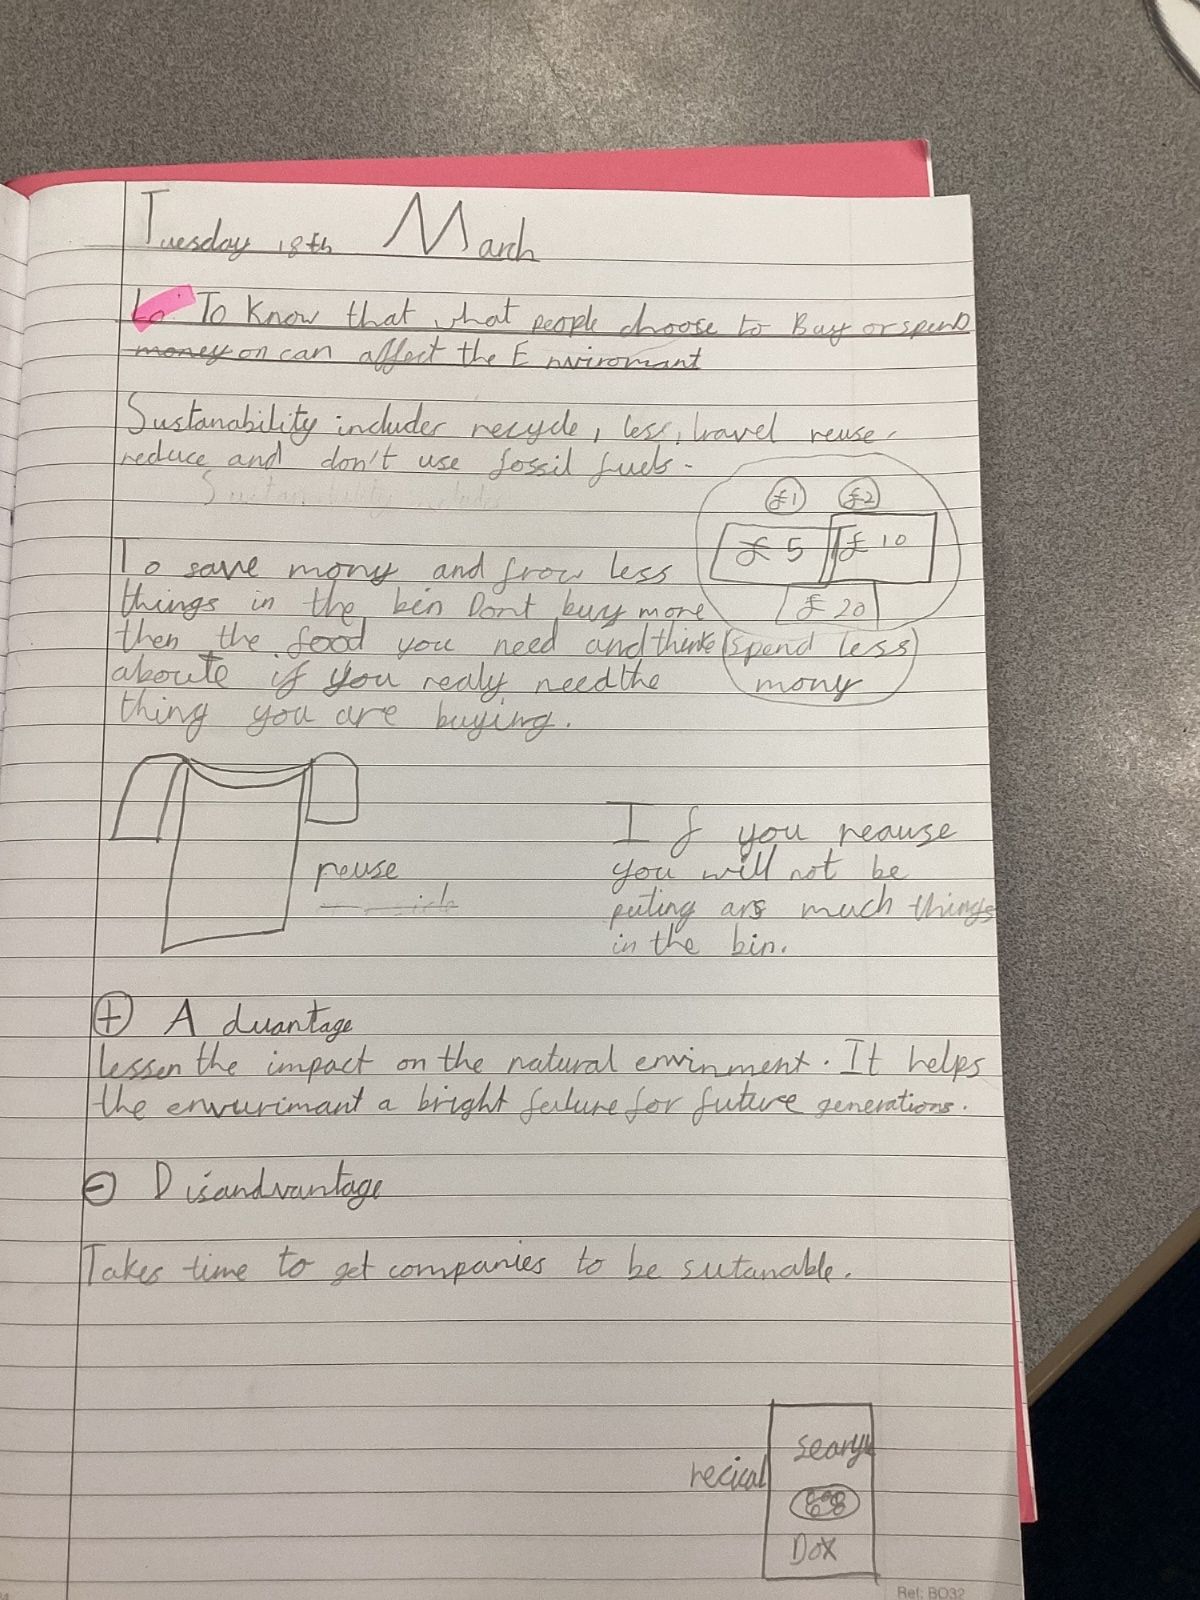 Tuesday 18th March
Lo: To Know that what people choose to Buy or spend
money on can affect the Enviromant
Sustanability includes recycle, less, travel reuse,
reduce and don't use fossil fuels.
£1 £2
£5 £10
£20
spend less
mony
To save mony and frow less
things in the bin Dont buy more
then the food you need and think
aboute if you realy need the
thing you are buying.
reuse
If you reause
you will not be
puting ars much things
in the bin.
+ Advantage
lessen the impact on the natural envinment. It helps
the envurimant a bright feuture for future generations.
- Disandvantage
Takes time to get companies to be sutanable.
recical
Box
Ref: BO32